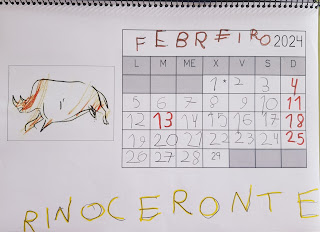 FEBREIRO 2024
L M ME X V S D
1 * 2 3 4
5 6 7 8 9 10 11
12 13 14 15 16 17 18
19 20 21 22 23 24 25
26 27 28 29
RINOCERONTE